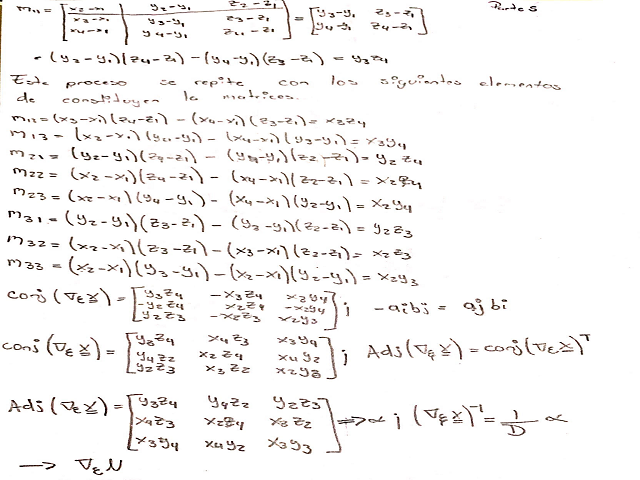 Parte 5
m₁₁ = [x₂-x₁ y₂-y₁ z₂-z₁; x₃-x₁ y₃-y₁ z₃-z₁; x₄-x₁ y₄-y₁ z₄-z₁] = [y₃-y₁ z₃-z₁; y₄-y₁ z₄-z₁]
= (y₃-y₁)(z₄-z₁) - (y₄-y₁)(z₃-z₁) = y₃z₄
Este proceso se repite con los siguientes elementos
de constituyen la matrices.
m₁₂ = (x₃-x₁)(z₄-z₁) - (x₄-x₁)(z₃-z₁) = x₃z₄
m₁₃ = (x₃-x₁)(y₄-y₁) - (x₄-x₁)(y₃-y₁) = x₃y₄
m₂₁ = (y₂-y₁)(z₄-z₁) - (y₄-y₁)(z₂-z₁) = y₂z₄
m₂₂ = (x₂-x₁)(z₄-z₁) - (x₄-x₁)(z₂-z₁) = x₂z₄
m₂₃ = (x₂-x₁)(y₄-y₁) - (x₄-x₁)(y₂-y₁) = x₂y₄
m₃₁ = (y₂-y₁)(z₃-z₁) - (y₃-y₁)(z₂-z₁) = y₂z₃
m₃₂ = (x₂-x₁)(z₃-z₁) - (x₃-x₁)(z₂-z₁) = x₂z₃
m₃₃ = (x₂-x₁)(y₃-y₁) - (x₃-x₁)(y₂-y₁) = x₂y₃
conj(∇ₑx) = [y₃z₄ -x₃z₄ x₃y₄; -y₂z₄ x₂z₄ -x₂y₄; y₂z₃ -x₂z₃ x₂y₃]; -aᵢbⱼ = aⱼbᵢ
conj(∇ₑx) = [y₃z₄ x₄z₃ x₃y₄; y₄z₂ x₂z₄ x₄y₂; y₂z₃ x₃z₂ x₂y₃]; Adj(∇ₑx) = conj(∇ₑx)ᵀ
Adj(∇ₑx) = [y₃z₄ y₄z₂ y₂z₃; x₄z₃ x₂z₄ x₃z₂; x₃y₄ x₄y₂ x₃y₃] ⇒ α; (∇ₑx)⁻¹ = 1/D α
→ ∇ₑN